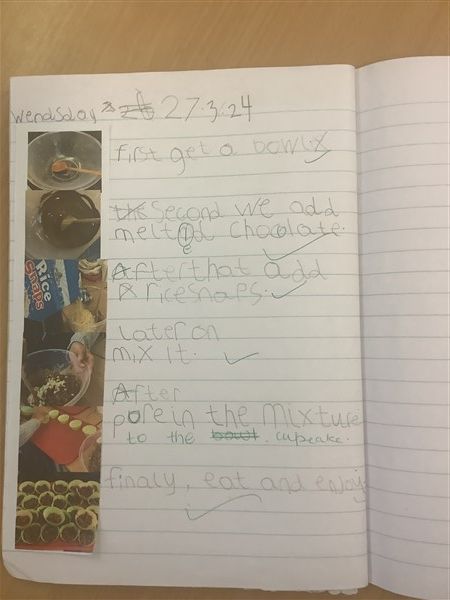 Wendsday 27.3.24
first get a bowl.
the Second we add
melted chocolate.
After that add
ricesnaps.
Rice
Snaps
Later on
mix it.
After
pore in the mixture
to the bowl cupcake.
finaly, eat and enjoy